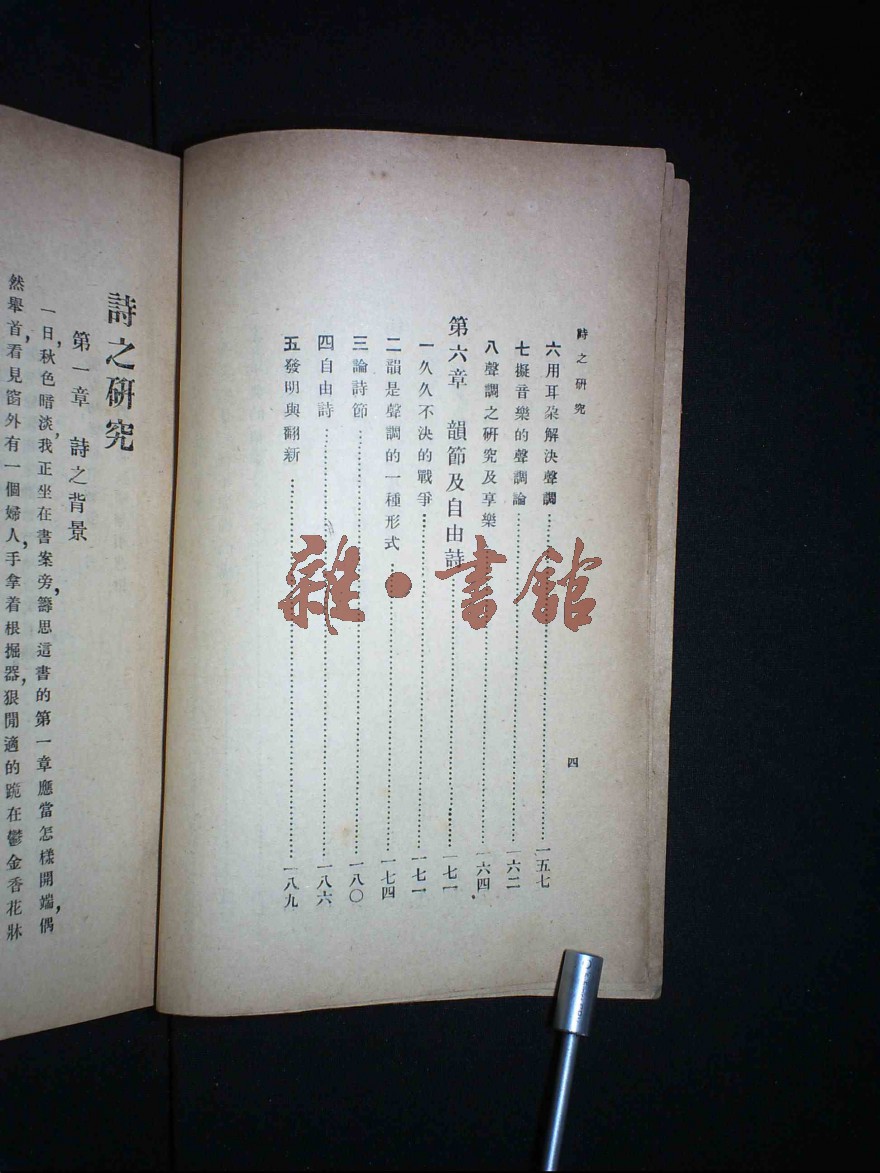 詩之研究
四
六 用耳朶解決聲調……一五七
七 擬音樂的聲調論……一六二
八 聲調之研究及享樂……一六四
第六章 韻節及自由詩……一七一
一 久久不決的戰爭……一七一
二 韻是聲調的一種形式……一七四
三 論詩節……一八〇
四 自由詩……一八六
五 發明與翻新……一八九
詩之研究
第一章 詩之背景
一日,秋色暗淡,我正坐在書案旁,籌思這書的第一章應當怎樣開端,偶
然舉首,看見窗外有一個婦人,手拿着根掘器,狠閒適的跪在鬱金香花牀
雜·書館